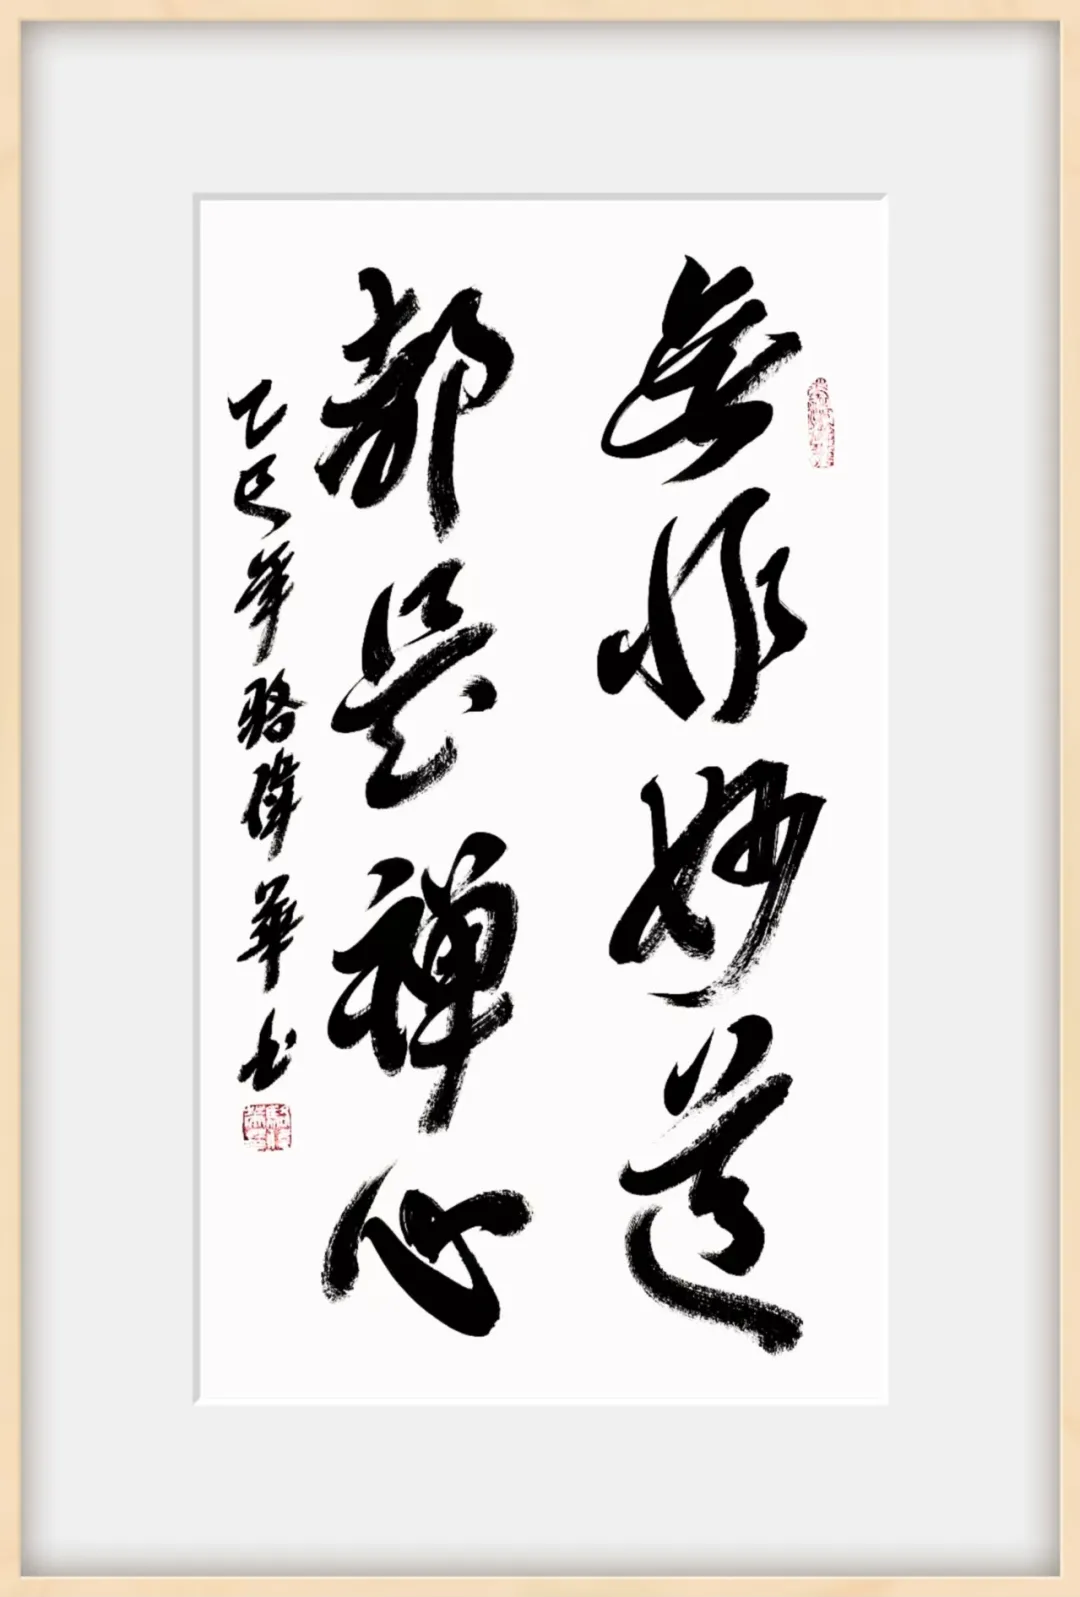 無非妙道
都是禪心
乙巳年駱偉華書